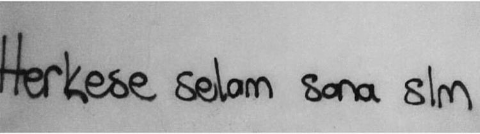 Herkese selam sana slm